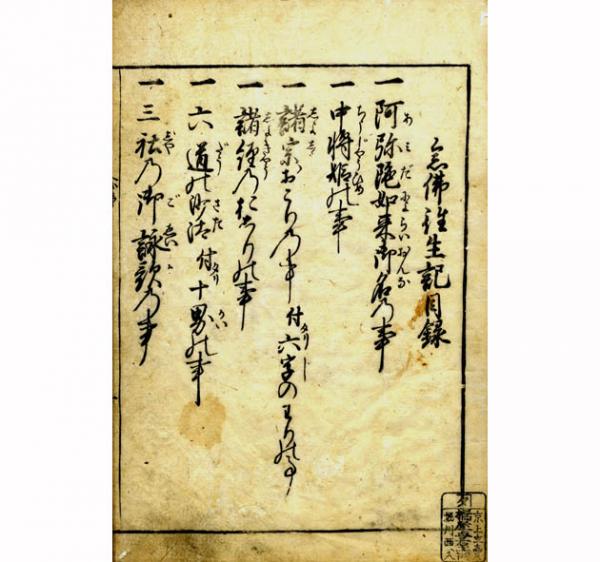 念佛往生記目録
一 阿弥陀如来御名乃事
一 中将姫の事
一 諸宗おこり乃事 付 六字のわりの事
一 諸経乃おこりの事
一 六道の沙汰 付 十界の事
一 三社乃御詠歌乃事